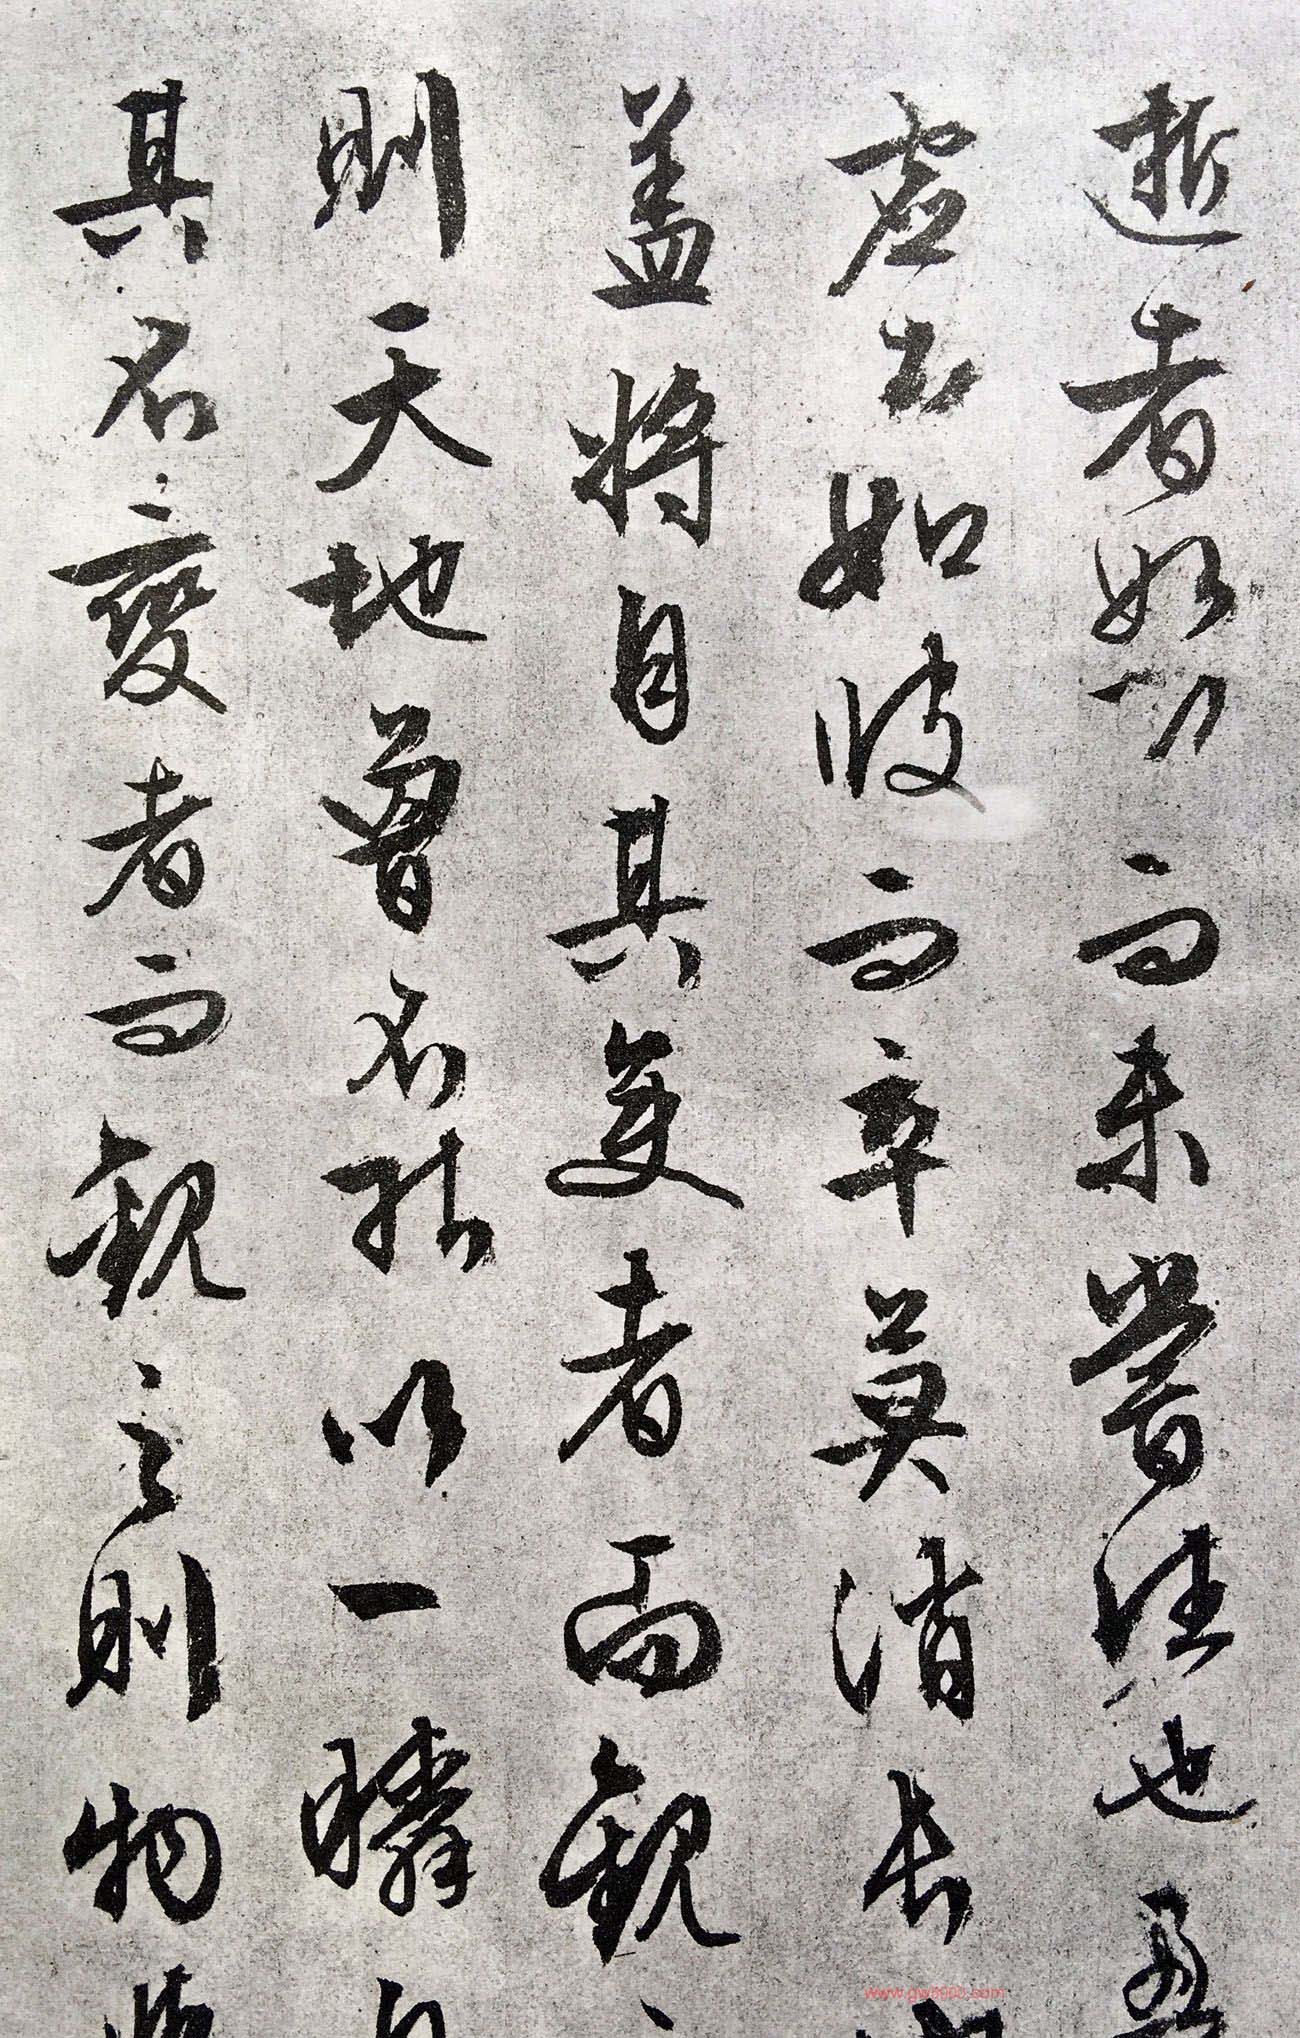 逝者如斯而未嘗往也盈
虛者如彼而卒莫消長
蓋將自其變者而觀
則天地曾不能以一瞬
其不變者而觀之則物